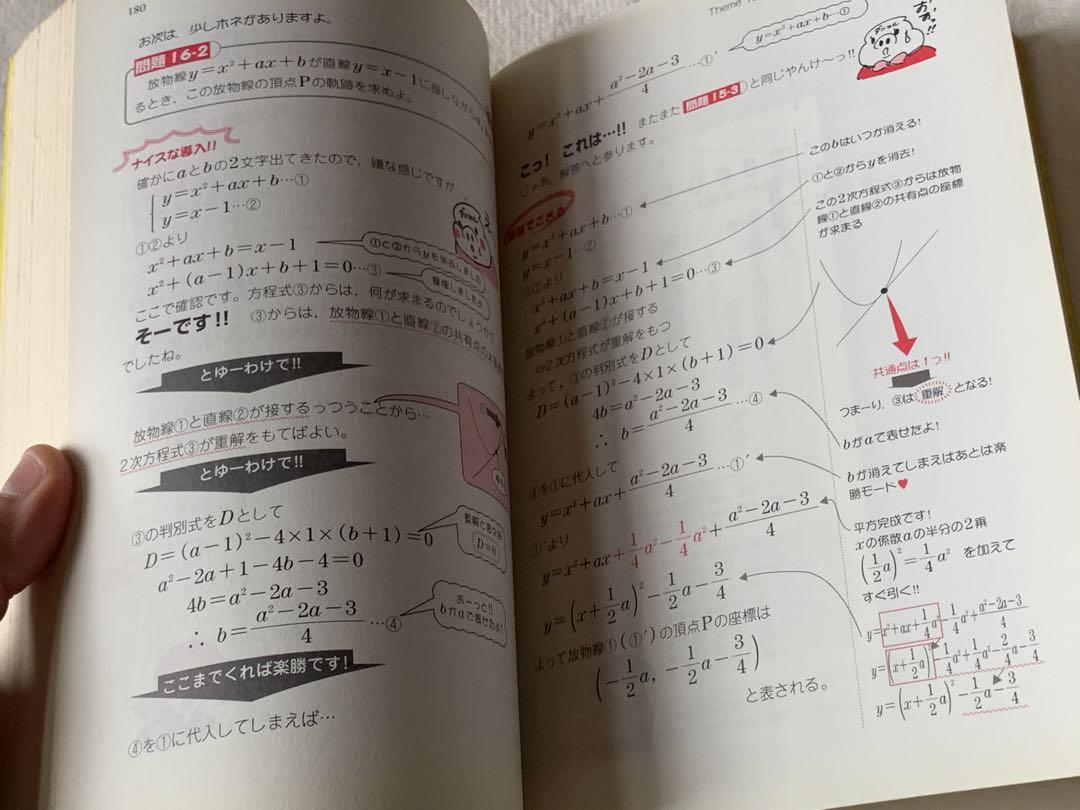 180
お次は，少しホネがありますよ。
問題 16-2
放物線y=x²+ax+bが直線y=x-1に接しながら
るとき，この放物線の頂点Pの軌跡を求めよ。
ナイスな導入!!
確かにaとbの2文字出てきたので，嫌な感じですが
y=x²+ax+b…①
y=x-1…②
①②より
x²+ax+b=x-1
①と②からyを消去しました
x²+(a-1)x+b+1=0…③
整理しましたよ
ここで確認です。方程式③からは，何が求まるのでしょうか
そーです!! ③からは，放物線①と直線②の共有点の
でしたね。
とゆーわけで!!
放物線①と直線②が接するっつうことから…
2次方程式③が重解をもてばよい。
とゆーわけで!!
③の判別式をDとして
D=(a-1)²-4×1×(b+1)=0
D=0
a²-2a+1-4b-4=0
4b=a²-2a-3
おーっと!!
bがaで表せたよ!
∴ b=(a²-2a-3)/4 …④
ここまでくれば楽勝です!
④を①に代入してしまえば…
Theme
y=x²+ax+(a²-2a-3)/4 …①′
y=x²+ax+b…①
おぉっ!!
こっ! これは…!! またまた 問題 15-3 と同じやんけ〜っ!!
じゃあ，解答へと参ります。
解答でござる
y=x²+ax+b…①
y=x-1…②
①②より
x²+ax+b=x-1
x²+(a-1)x+b+1=0…③
放物線①と直線②が接する
⇔2次方程式が重解をもつ
よって，③の判別式をDとして
D=(a-1)²-4×1×(b+1)=0
4b=a²-2a-3
∴ b=(a²-2a-3)/4 …④
④を①に代入して
y=x²+ax+(a²-2a-3)/4 …①′
①′より
y=x²+ax+1/4a²-1/4a²+(a²-2a-3)/4
y=(x+1/2a)²-1/2a-3/4
よって放物線①（①′）の頂点Pの座標は
(-1/2a, -1/2a-3/4)
と表される。
このbはいつか消える!
①と②からyを消去!
この2次方程式③からは放物
線①と直線②の共有点の座標
が求まる
共通点は1つ!!
つまーり，③は重解となる!
bがaで表せたよ!
bが消えてしまえばあとは楽
勝モード♥
平方完成です!
xの係数aの半分の2乗
(1/2a)²=1/4a² を加えて
すぐ引く!!
y=x²+ax+1/4a²-1/4a²+(a²-2a-3)/4
y=(x+1/2a)²-1/4a²+1/4a²-2/4a-3/4
y=(x+1/2a)²-1/2a-3/4